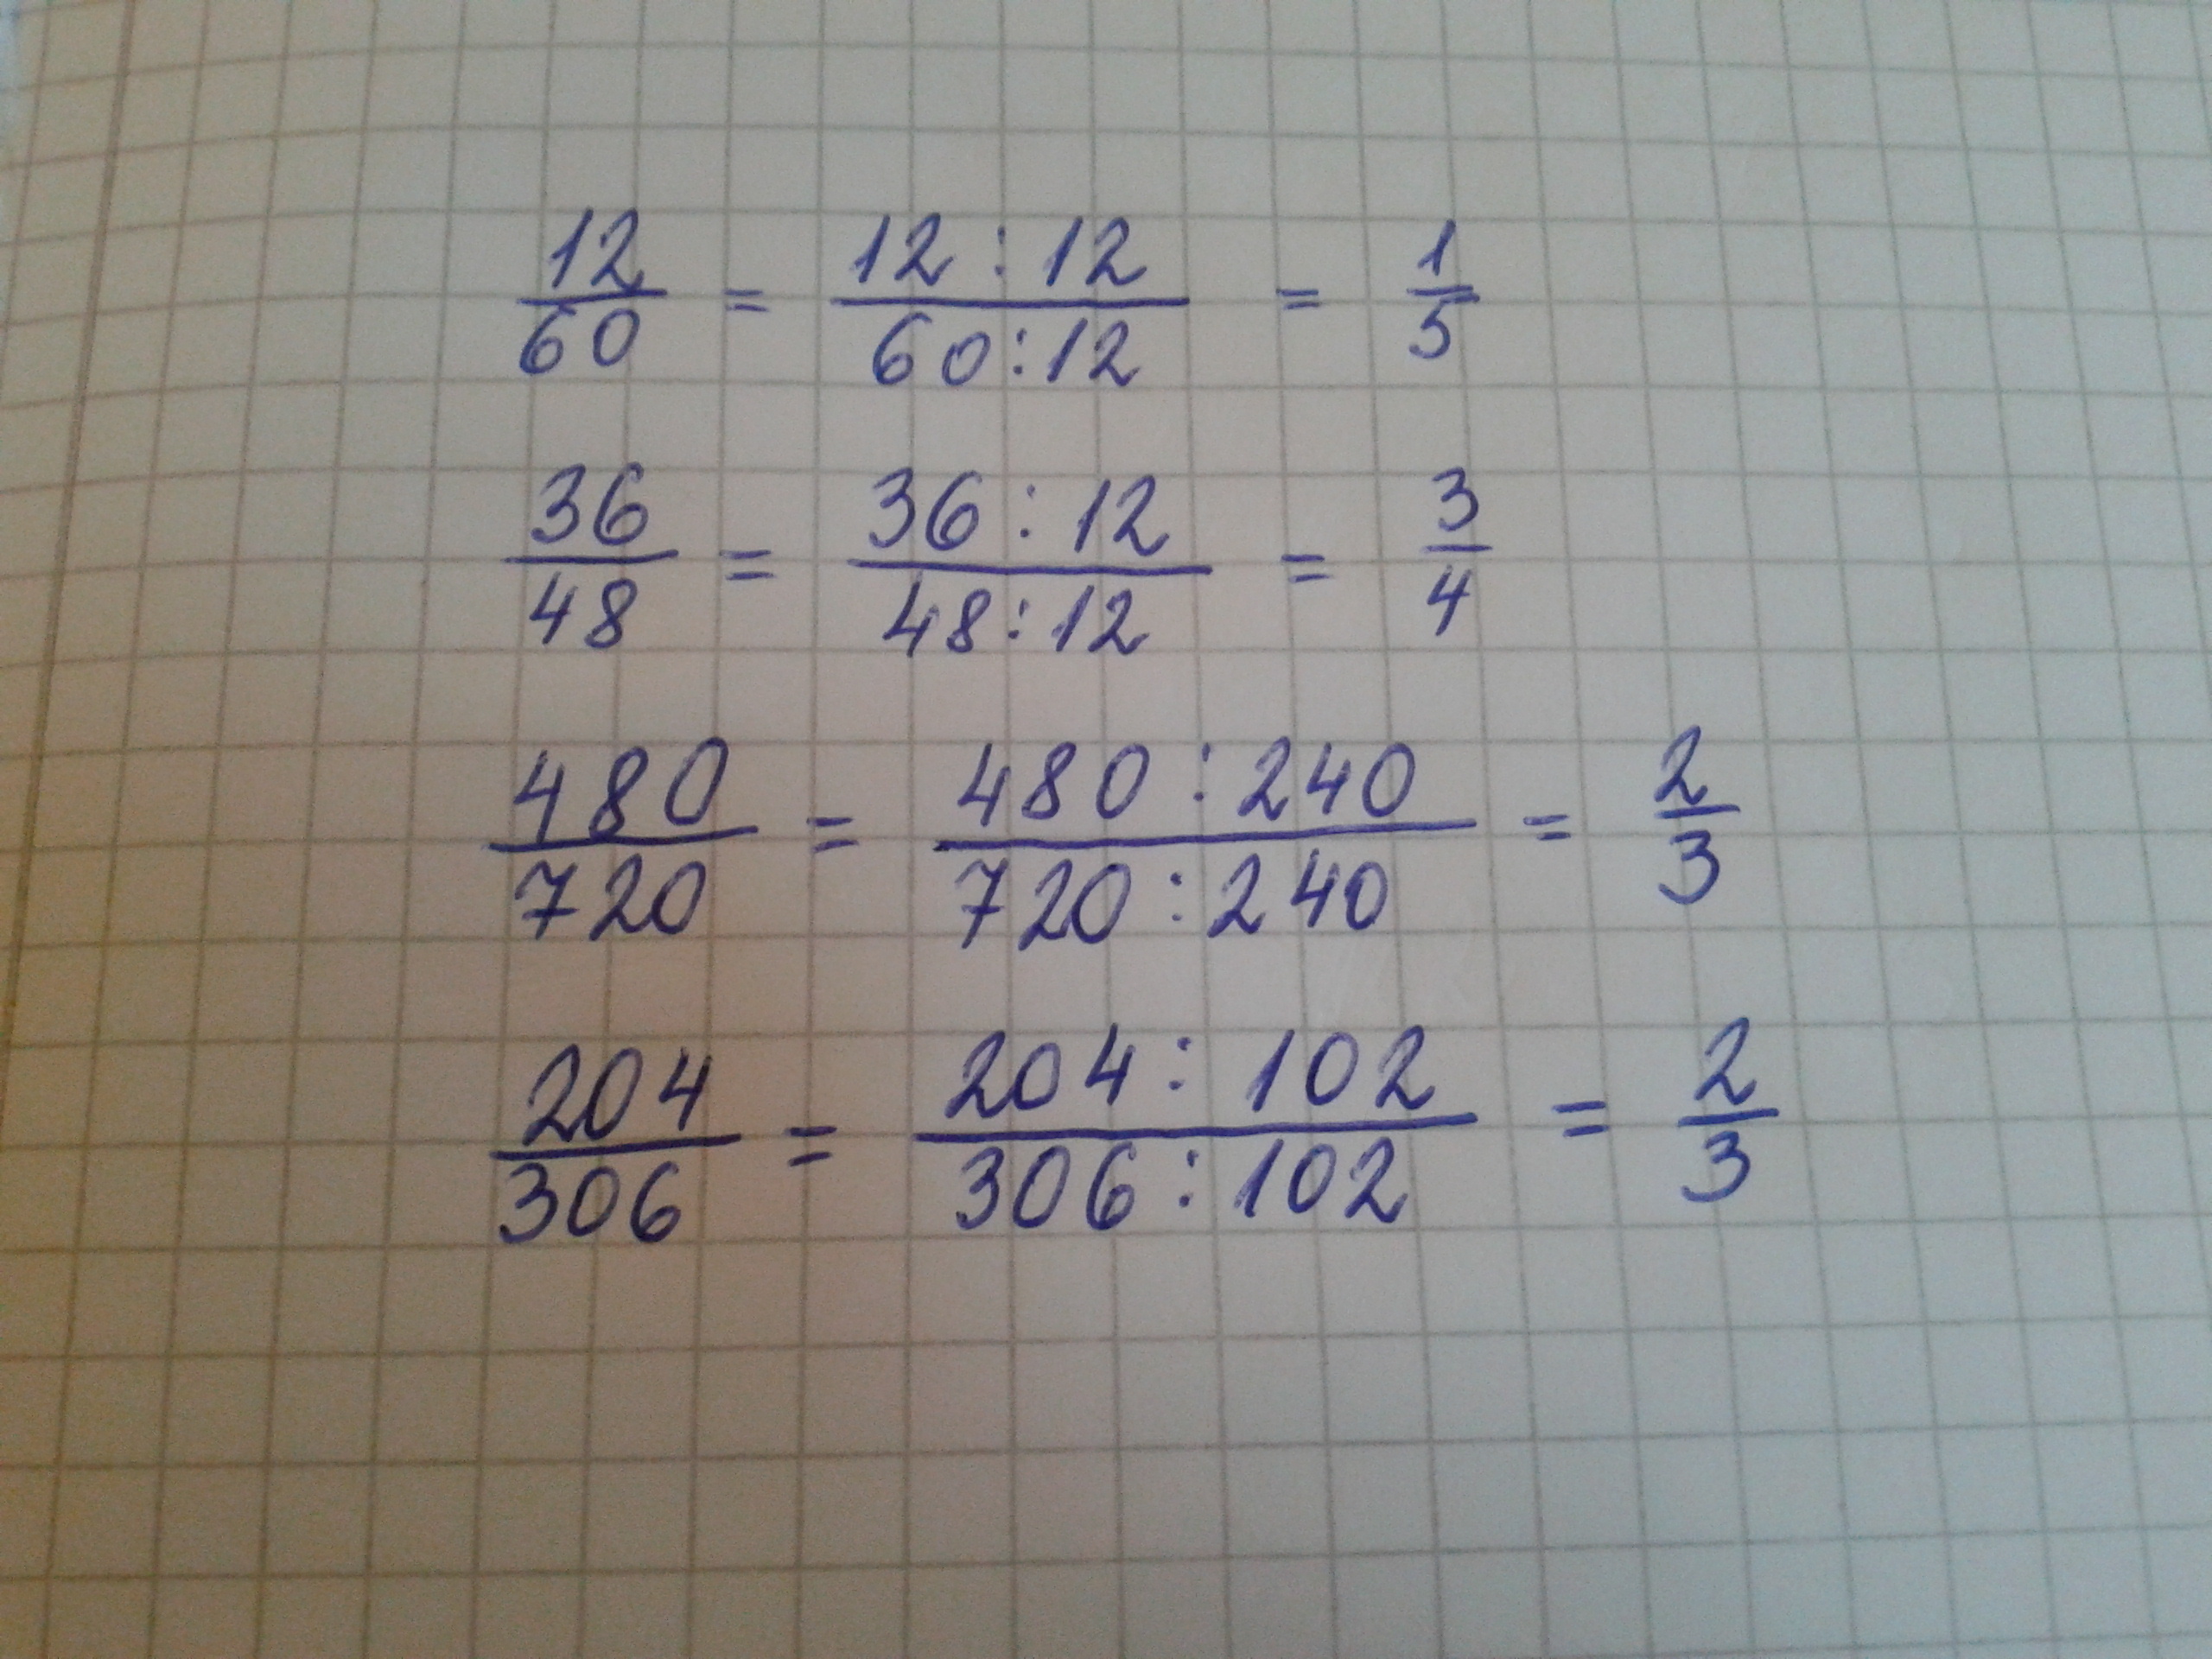 12/60 = 12:12/60:12 = 1/5
36/48 = 36:12/48:12 = 3/4
480/720 = 480:240/720:240 = 2/3
204/306 = 204:102/306:102 = 2/3